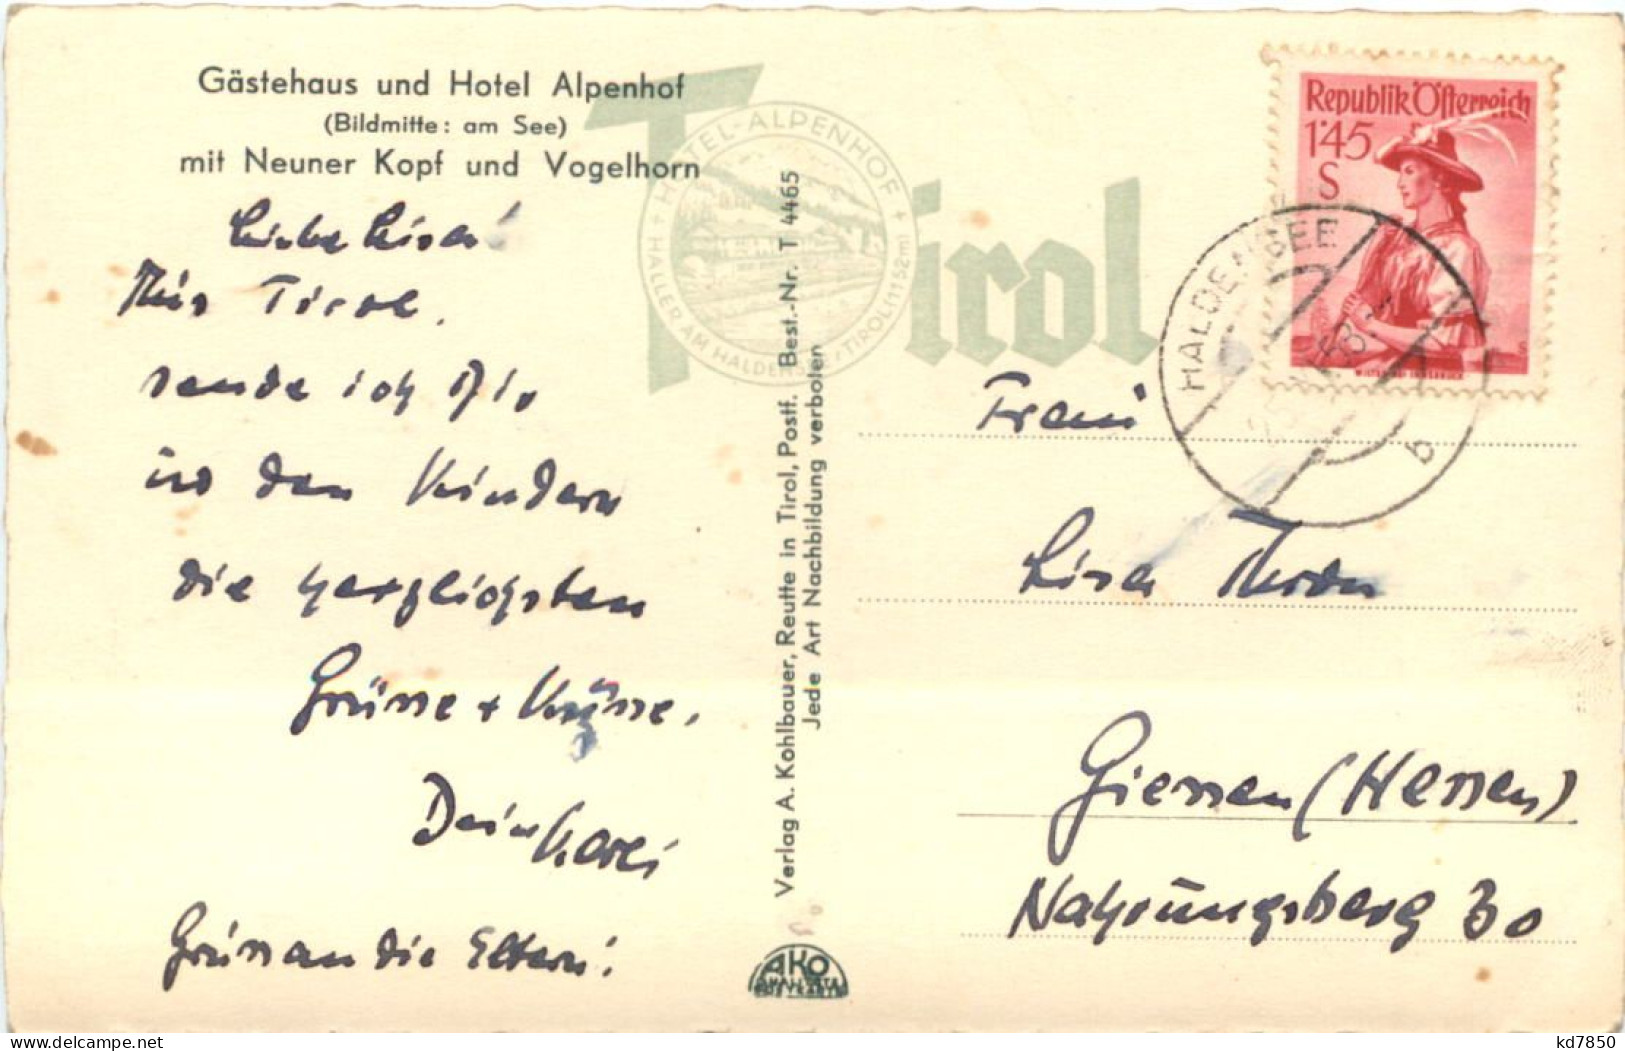 Gästehaus und Hotel Alpenhof
(Bildmitte: am See)
mit Neuner Kopf und Vogelhorn
Liebe Lisa!
Aus Tirol
sende ich Dir
und den Kindern
die herzlichsten
Grüsse + Küsse,
Dein Karli
Grüss an die Eltern!
Verlag A. Kohlbauer, Reutte in Tirol, Postf. Best.-Nr. T 4465
Jede Art Nachbildung verboten
AKO
Tirol
HOTEL-ALPENHOF + HALLER AM HALDENSEE / TIROL (1152m) +
Republik Österreich
1'45
S
HALDENSEE
b
Frau
Lisa
Giessen (Hessen)
Nahrungsberg 30
kd7850